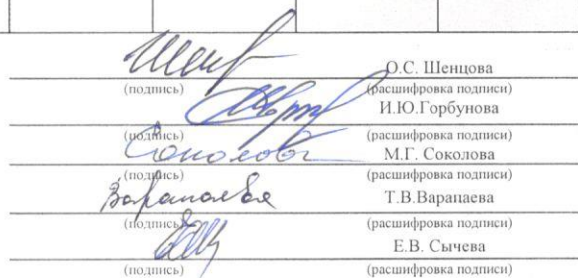 О.С. Шенцова
(подпись) (расшифровка подписи)
И.Ю.Горбунова
(подпись) (расшифровка подписи)
Соколова М.Г. Соколова
(подпись) (расшифровка подписи)
Варапаева Т.В.Варапаева
(подпись) (расшифровка подписи)
Е.В. Сычева
(подпись) (расшифровка подписи)